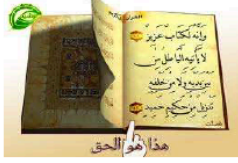 وإنه لكتاب عزيز
لا يأتيه الباطل من
بين يديه ولا من خلفه
تنزيل من حكيم حميد
هذا هو الحق